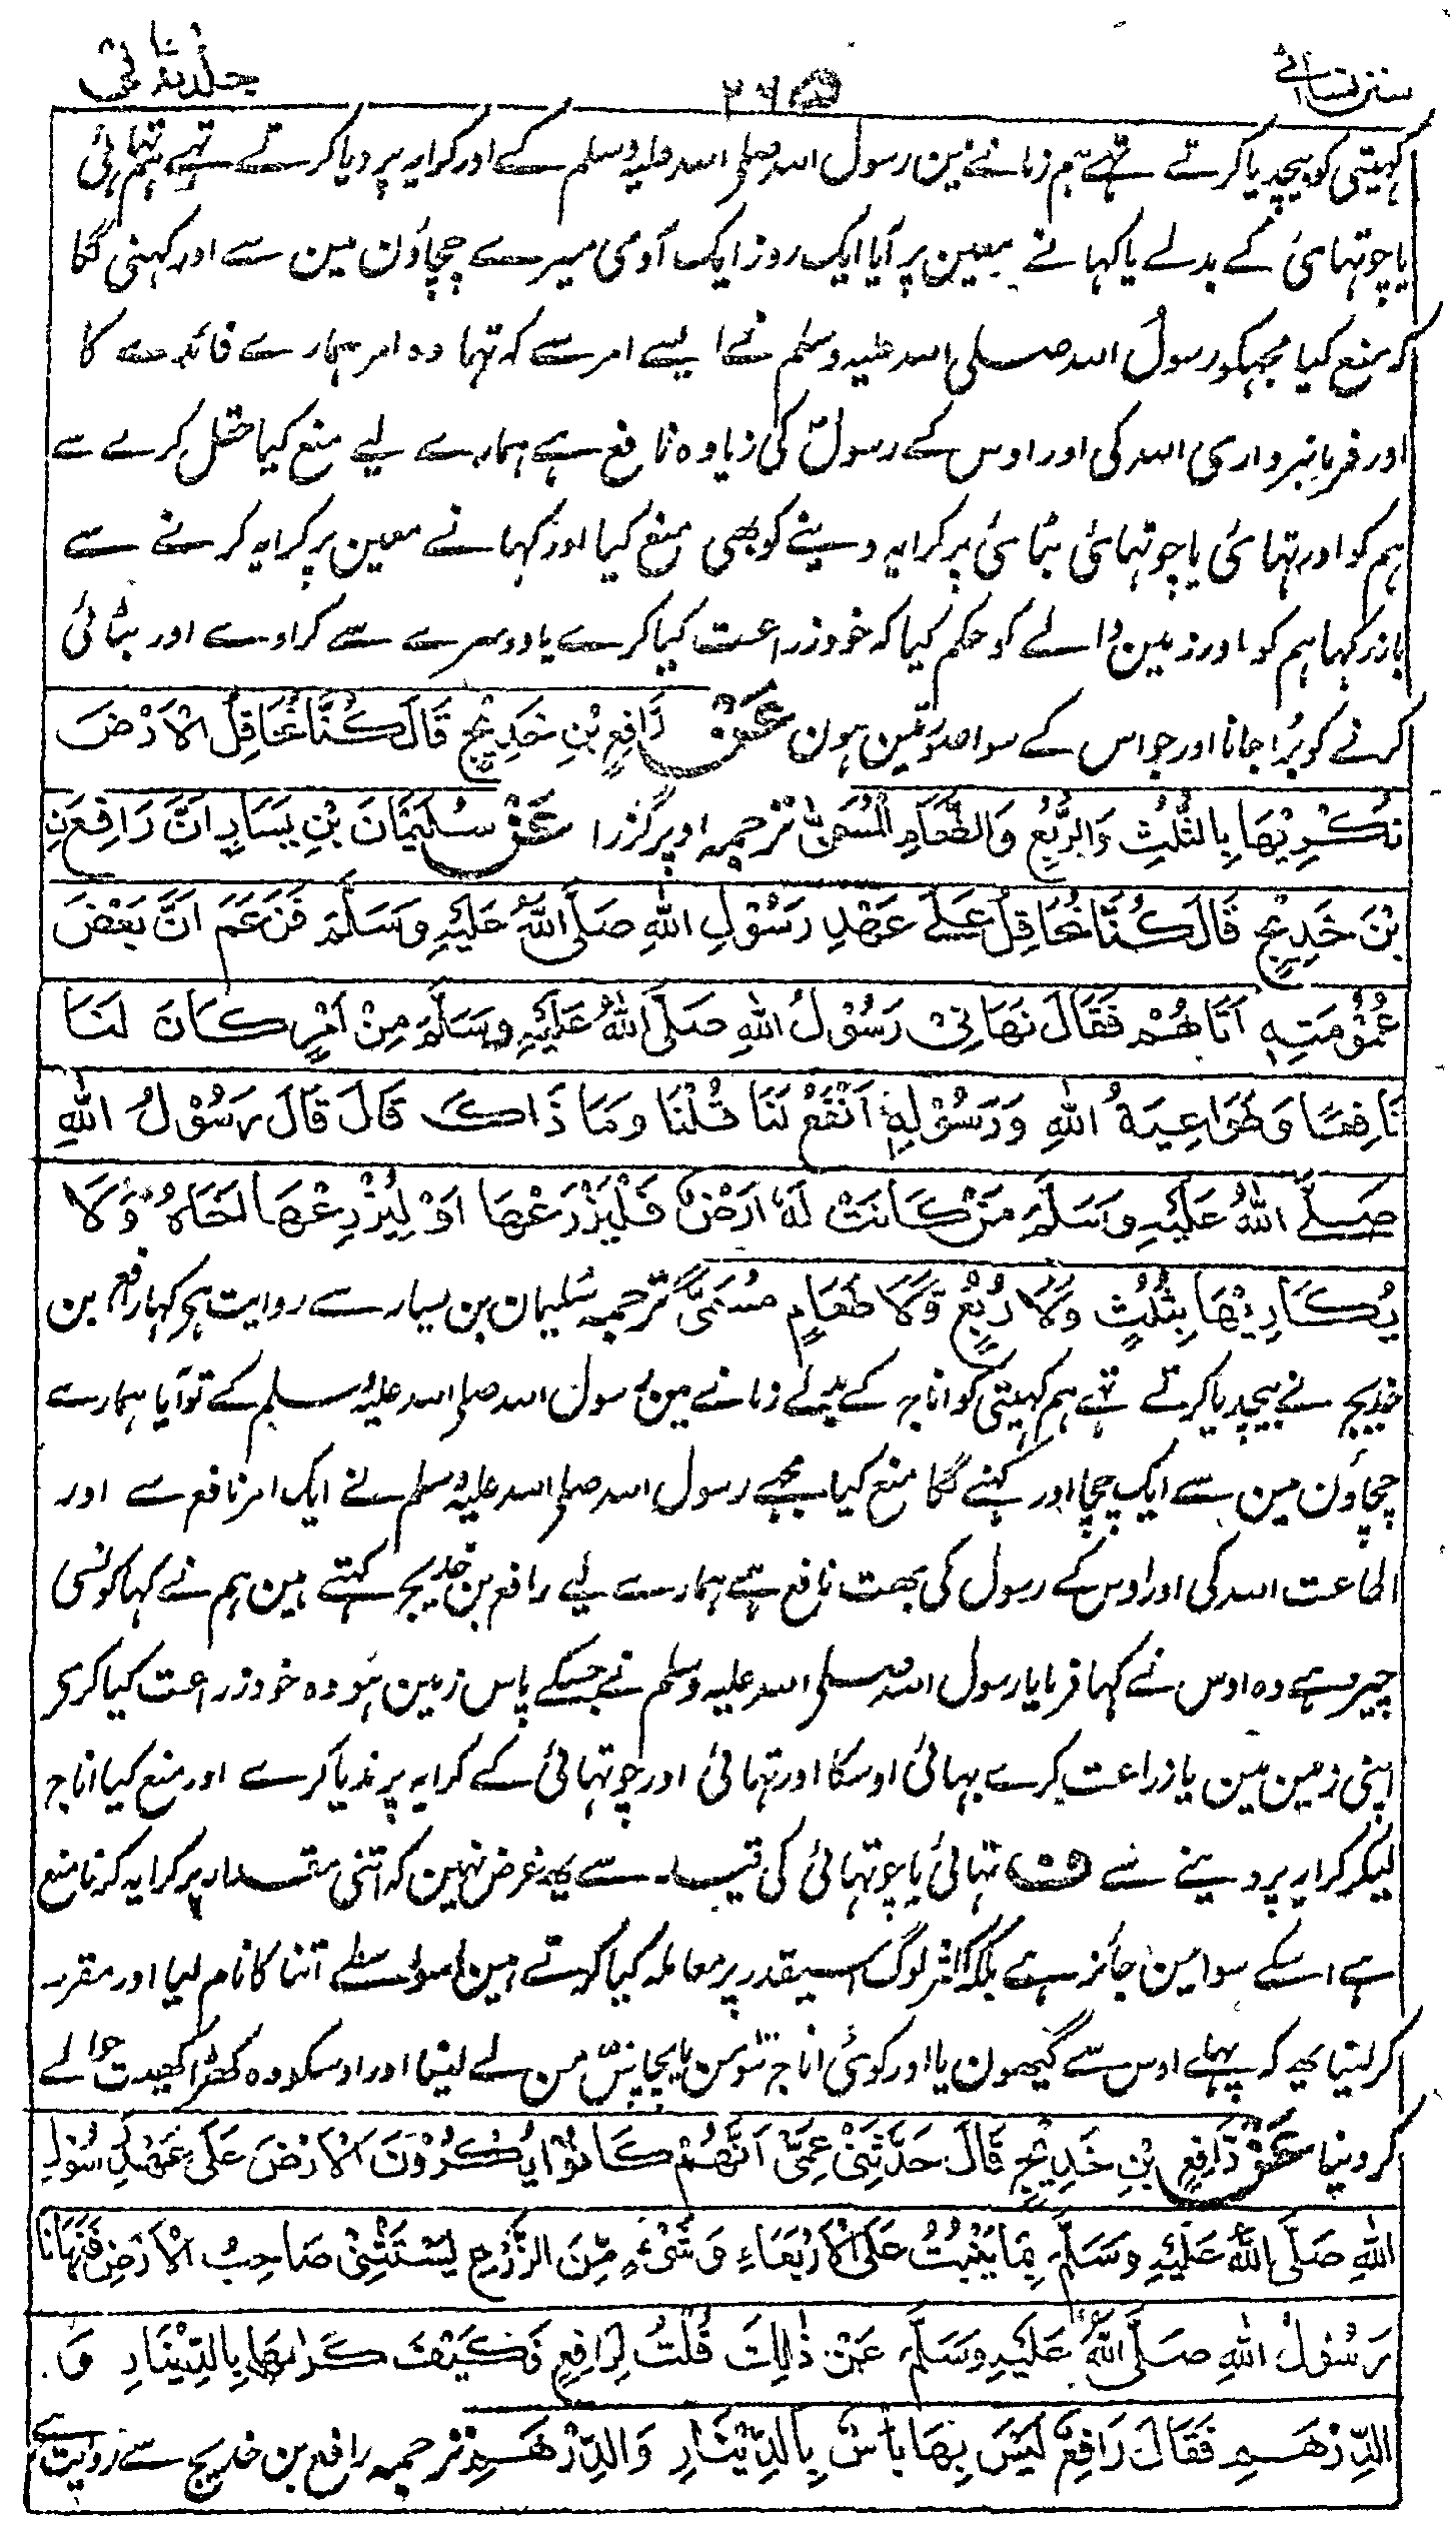 سنن نسائی
۲۶۵
جلد ثانی
کہیتی کو بیچدیا کرتے تھے ہم زمانے مین رسول اللہ صلی اللہ علیہ وسلم کے اور کرایہ پر دیا کرتے تہے ہم تہائی
یا چوتہائی کے بدلے یا کہانے معین پر آیا ایک روز ایک آدمی میرے چچاؤن مین سے اور کہنی لگا
کہ منع کیا مجہکو رسول اللہ صلی اللہ علیہ وسلم نے ایسے امر سے کہ تہا وہ امر ہمارے فائدے کا
اور فرمانبرداری اللہ کی اور اوس کے رسول کی زیادہ نافع ہے ہمارے لیے منع کیا حقل کرے سے
ہم کو اور تہائی یا چوتہائی بٹائی پر کرایہ دینے کو بھی منع کیا اور کہانے معین پر کرایہ کرنے سے
باز رکہا ہم کو اور زمین والے کو حکم کیا کہ خود زراعت کیا کرے یا دوسرے سے کراوے اور بٹائی
کرنے کو برا جانا اور جو اس کے سوا صورتین ہون عَنْ رَافِعِ بْنِ خَدِيْجٍ قَالَ كُنَّا نُحَاقِلُ الْاَرْضَ
نُكْرِيْهَا بِالثُّلُثِ وَالرُّبُعِ وَالطَّعَامِ الْمُسَمّٰى ترجمہ اوپر گزرا عَنْ سُلَيْمَانَ بْنِ يَسَارٍ اَنَّ رَافِعَ بْنَ
بْنَ خَدِيْجٍ قَالَ كُنَّا نُحَاقِلُ عَلٰى عَهْدِ رَسُوْلِ اللهِ صَلَّى اللهُ عَلَيْهِ وَسَلَّمَ فَزَعَمَ اَنَّ بَعْضَ
عُمُوْمَتِهٖ اَتَاهُمْ فَقَالَ نَهَانِىْ رَسُوْلُ اللهِ صَلَّى اللهُ عَلَيْهِ وَسَلَّمَ مِنْ اَمْرٍ كَانَ لَنَا
نَافِعًا وَطَوَاعِيَةُ اللهِ وَرَسُوْلِهٖ اَنْفَعُ لَنَا قُلْنَا وَمَا ذَاكَ قَالَ قَالَ رَسُوْلُ اللهِ
صَلَّى اللهُ عَلَيْهِ وَسَلَّمَ مَنْ كَانَتْ لَهٗ اَرْضٌ فَلْيَزْرَعْهَا اَوْ لِيُزْرِعْهَا اَخَاهُ وَلَا
يُكَارِيْهَا بِثُلُثٍ وَلَا رُبُعٍ وَلَا طَعَامٍ مُسَمًّى ترجمہ سلیمان بن یسار سے روایت ہی کہا رافع بن
خدیج نے بیچدیا کرتے تہے ہم کہیتی کو اناج کے بدلے زمانے مین رسول اللہ صلی اللہ علیہ وسلم کے تو آیا ہمارے
چچاؤن مین سے ایک چچا اور کہنے لگا منع کیا مجہے رسول اللہ صلی اللہ علیہ وسلم نے ایک امر نافع سے اور
اطاعت اللہ کی اور اوس کے رسول کی بہت نافع ہے ہمارے لیے رافع بن خدیج کہتے ہین ہم نے کہا کونسی
چیز ہے وہ اوس نے کہا فرمایا رسول اللہ صلی اللہ علیہ وسلم نے جسکے پاس زمین ہو وہ خود زراعت کیا کری
اپنی زمین مین یا زراعت کرے بہائی اوسکا اور تہائی اور چوتہائی کے کرایہ پر ندیا کرے اور منع کیا اناج
لیکر کرایہ پر دینے سے ف تہائی یا چوتہائی کی قید سے یہ غرض نہین کہ اتنی مقدار پر کرایہ کرنا منع
ہے اسکے سوا مین جائز ہے بلکہ اکثر لوگ اسیقدر پر معاملہ کیا کرتے ہین اسواسطے اتنا کا نام لیا اور مقرر
کرلینا یہ کہ پہلے اوس سے گیہون یا اور کوئی اناج سومن یا پچاس من لے لینا اور اوسکو وہ کھڑا کھیت حوالے
کر دینا عَنْ رَافِعِ بْنِ خَدِيْجٍ قَالَ حَدَّثَنِىْ عَمِّىْ اَنَّهُمْ كَانُوْا يُكْرُوْنَ الْاَرْضَ عَلٰى عَهْدِ رَسُوْلِ
اللهِ صَلَّى اللهُ عَلَيْهِ وَسَلَّمَ بِمَا يَنْبُتُ عَلَى الْاَرْبِعَاءِ وَشَىْءٍ مِّنَ الزَّرْعِ يَسْتَثْنِىْ صَاحِبُ الْاَرْضِ فَنَهَانَا
رَسُوْلُ اللهِ صَلَّى اللهُ عَلَيْهِ وَسَلَّمَ عَنْ ذٰلِكَ قُلْتُ لِرَافِعٍ فَكَيْفَ كِرَاءُهَا بِالدِّيْنَارِ وَ
الدِّرْهَمِ فَقَالَ رَافِعٌ لَيْسَ بِهَا بَأْسٌ بِالدِّيْنَارِ وَالدِّرْهَمِ ترجمہ رافع بن خدیج سے روایت ہے